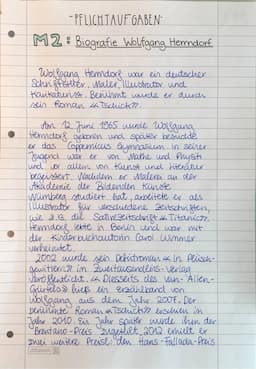 -PFLICHTAUFGABEN-
M2: Biografie Wolfgang Herrndorf
Wolfgang Herrndorf war ein deutscher
Schriftsteller, Maler, Illustrator und
Karikaturist. Berühmt wurde er durch
sein Roman «Tschick».
Am 12. Juni 1965 wurde Wolfgang
Herrndorf geboren und später besuchte
er das Coppernicus Gymnasium. In seiner
Jugend war er von Mathe und Physik
und vor allem von Kunst und Literatur
begeistert. Nachdem er Malerei an der
Akademie der Bildenden Künste
Nürnberg studiert hat, arbeitete er als
Illustrator für verschiedene Zeitschriften,
wie z.B. die Satirezeitschrift «Titanic».
Herrndorf lebte in Berlin und war mit
der Kinderbuchautorin Carol Wimmer
verheiratet.
2002 wurde sein Debütroman «In Plüsch-
gewittern» in Zweitausendeins-Verlag
veröffentlicht. «Diesseits des Van-Allen-
Gürtels» hieß ein Erzählband von
Wolfgang aus dem Jahr 2007. Der
berühmte Roman «Tschick» erschien im
Jahr 2010. Ein Jahr später wurde ihm der
Brentano-Preis zugeteilt. 2012 erhielt er
zwei weitere Preise: den Hans-Fallada-Preis